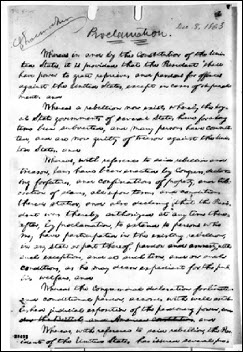 Proclamation.
Dec. 8. 1863
Whereas in and by the Constitution of the Uni-
ted States, it is provided that the President "shall
have power to grant reprieves and pardons for offences
against the United States, except in cases of impeach-
ment," and
Whereas a rebellion now exists whereby the loy-
al State governments of several States have for a long
time been subverted, and many persons have commit-
ted and are now guilty of treason against the Uni-
ted States, and
Whereas, with reference to said rebellion and
treason, laws have been enacted by Congress, declar-
ing forfeitures, and confiscation of property, and lib-
eration of slaves, all upon terms and conditions
therein stated, and also declaring that the Presi-
dent was thereby authorized at any time there-
after, by proclamation, to extend to persons who
may have participated in the existing rebellion,
in any State or part thereof, pardon and amnesty, with
such exceptions, and at such times, and on such
conditions, as he may deem expedient for the pub-
lic welfare, and
Whereas the Congressional declaration for limited
and conditional pardon, accords with well estab-
lished judicial exposition of the pardoning power, and
Whereas with reference to said rebellion, the Pres-
ident of the United States, has issued several proc